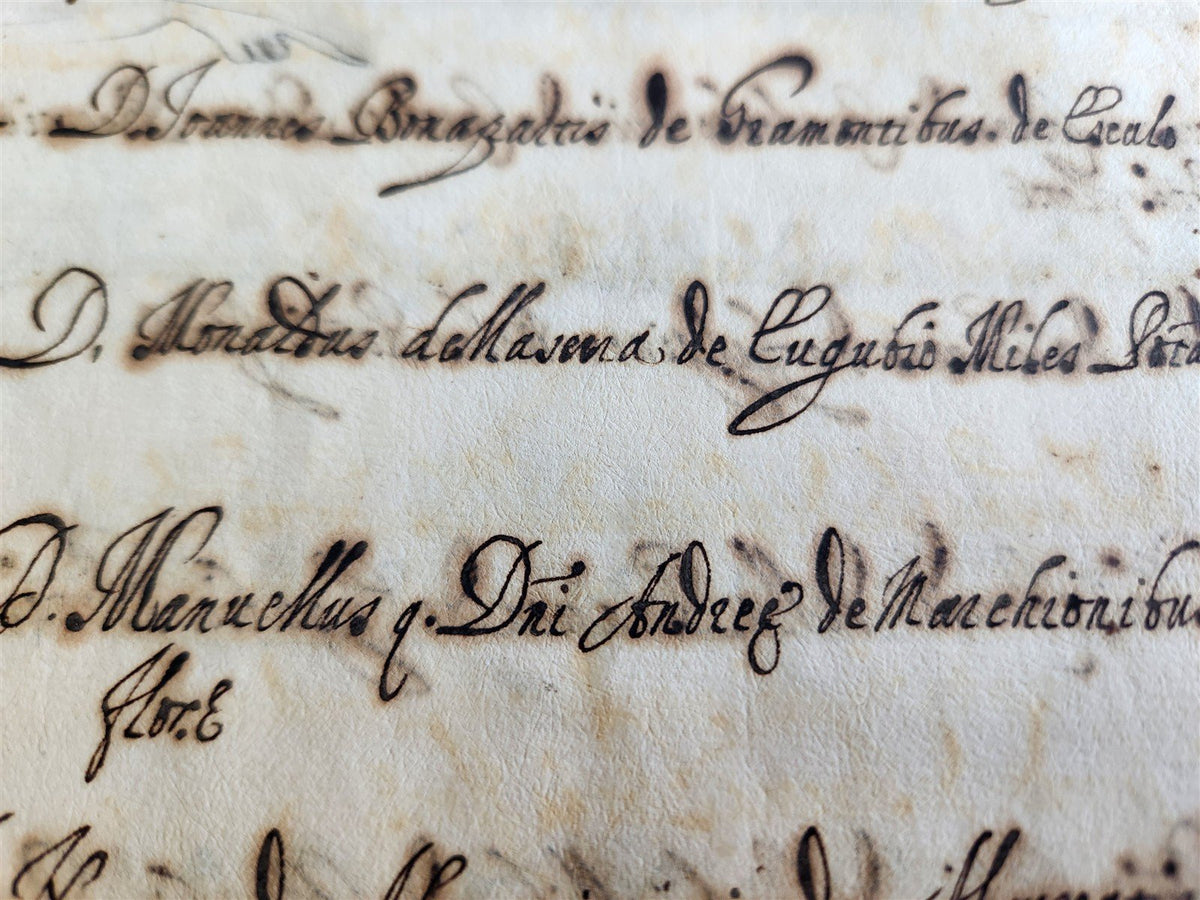 D. Joannes Bonazaltis de Gramontibus. de Escalo
D. Monaldus de Masena, de Eugubio Miles Potã
D. Manuellus q. Dñi Andreę de Marchionibus
flor.E